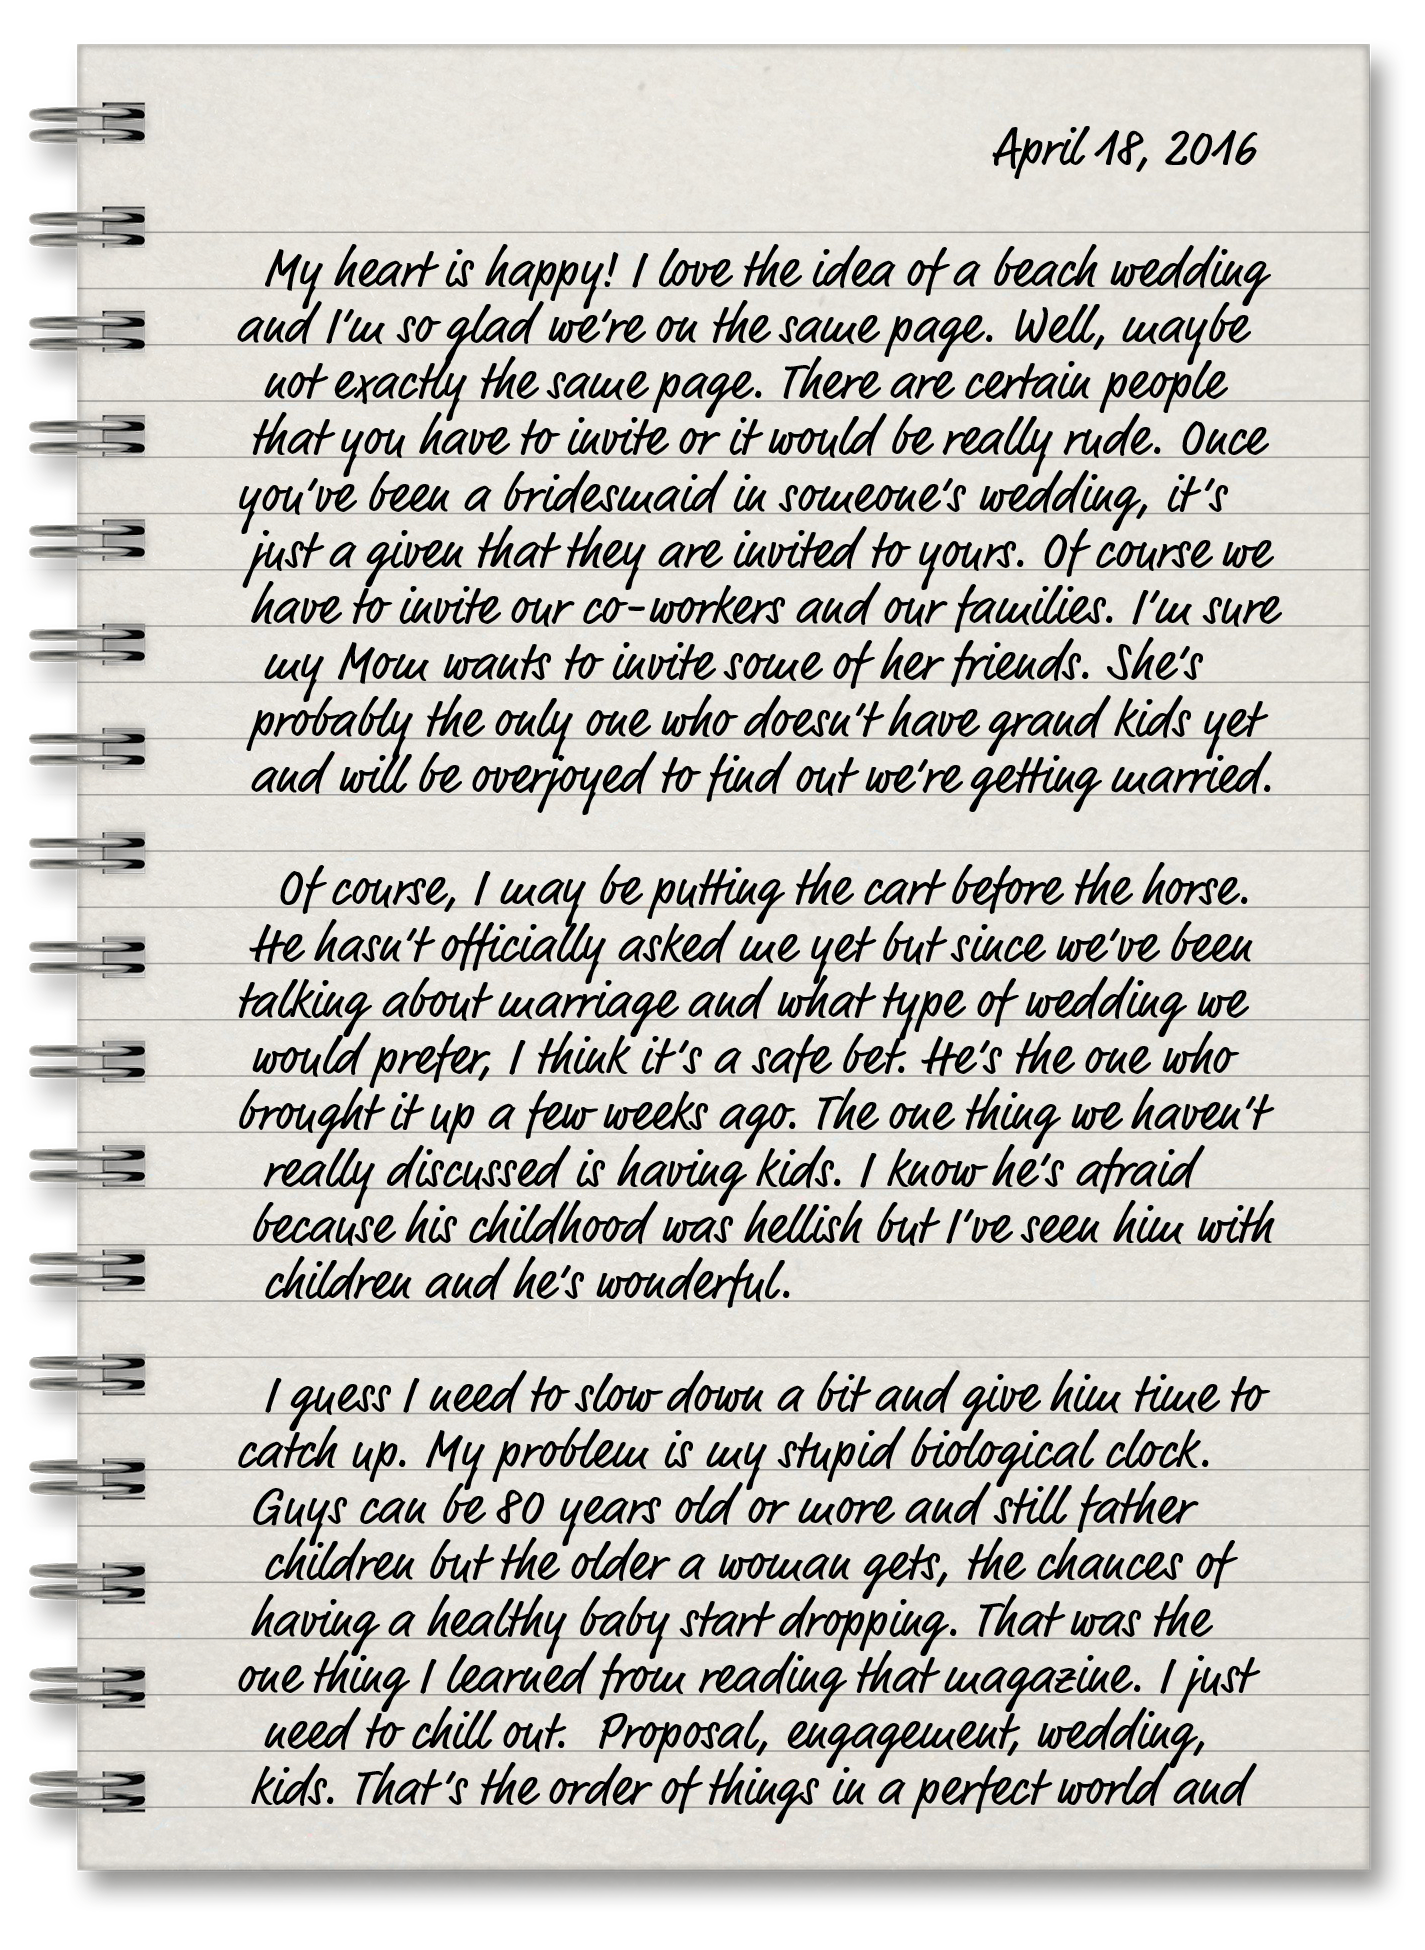 April 18, 2016
My heart is happy! I love the idea of a beach wedding
and I'm so glad we're on the same page. Well, maybe
not exactly the same page. There are certain people
that you have to invite or it would be really rude. Once
you've been a bridesmaid in someone's wedding, it's
just a given that they are invited to yours. Of course we
have to invite our co-workers and our families. I'm sure
my Mom wants to invite some of her friends. She's
probably the only one who doesn't have grand kids yet
and will be overjoyed to find out we're getting married.
Of course, I may be putting the cart before the horse.
He hasn't officially asked me yet but since we've been
talking about marriage and what type of wedding we
would prefer, I think it's a safe bet. He's the one who
brought it up a few weeks ago. The one thing we haven't
really discussed is having kids. I know he's afraid
because his childhood was hellish but I've seen him with
children and he's wonderful.
I guess I need to slow down a bit and give him time to
catch up. My problem is my stupid biological clock.
Guys can be 80 years old or more and still father
children but the older a woman gets, the chances of
having a healthy baby start dropping. That was the
one thing I learned from reading that magazine. I just
need to chill out. Proposal, engagement, wedding,
kids. That's the order of things in a perfect world and